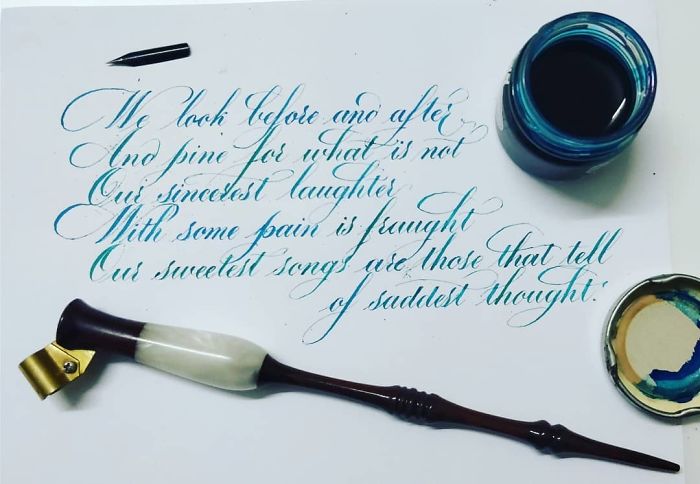 We look before and after,
And pine for what is not
Our sincerest laughter
With some pain is fraught
Our sweetest songs are those that tell
of saddest thought.